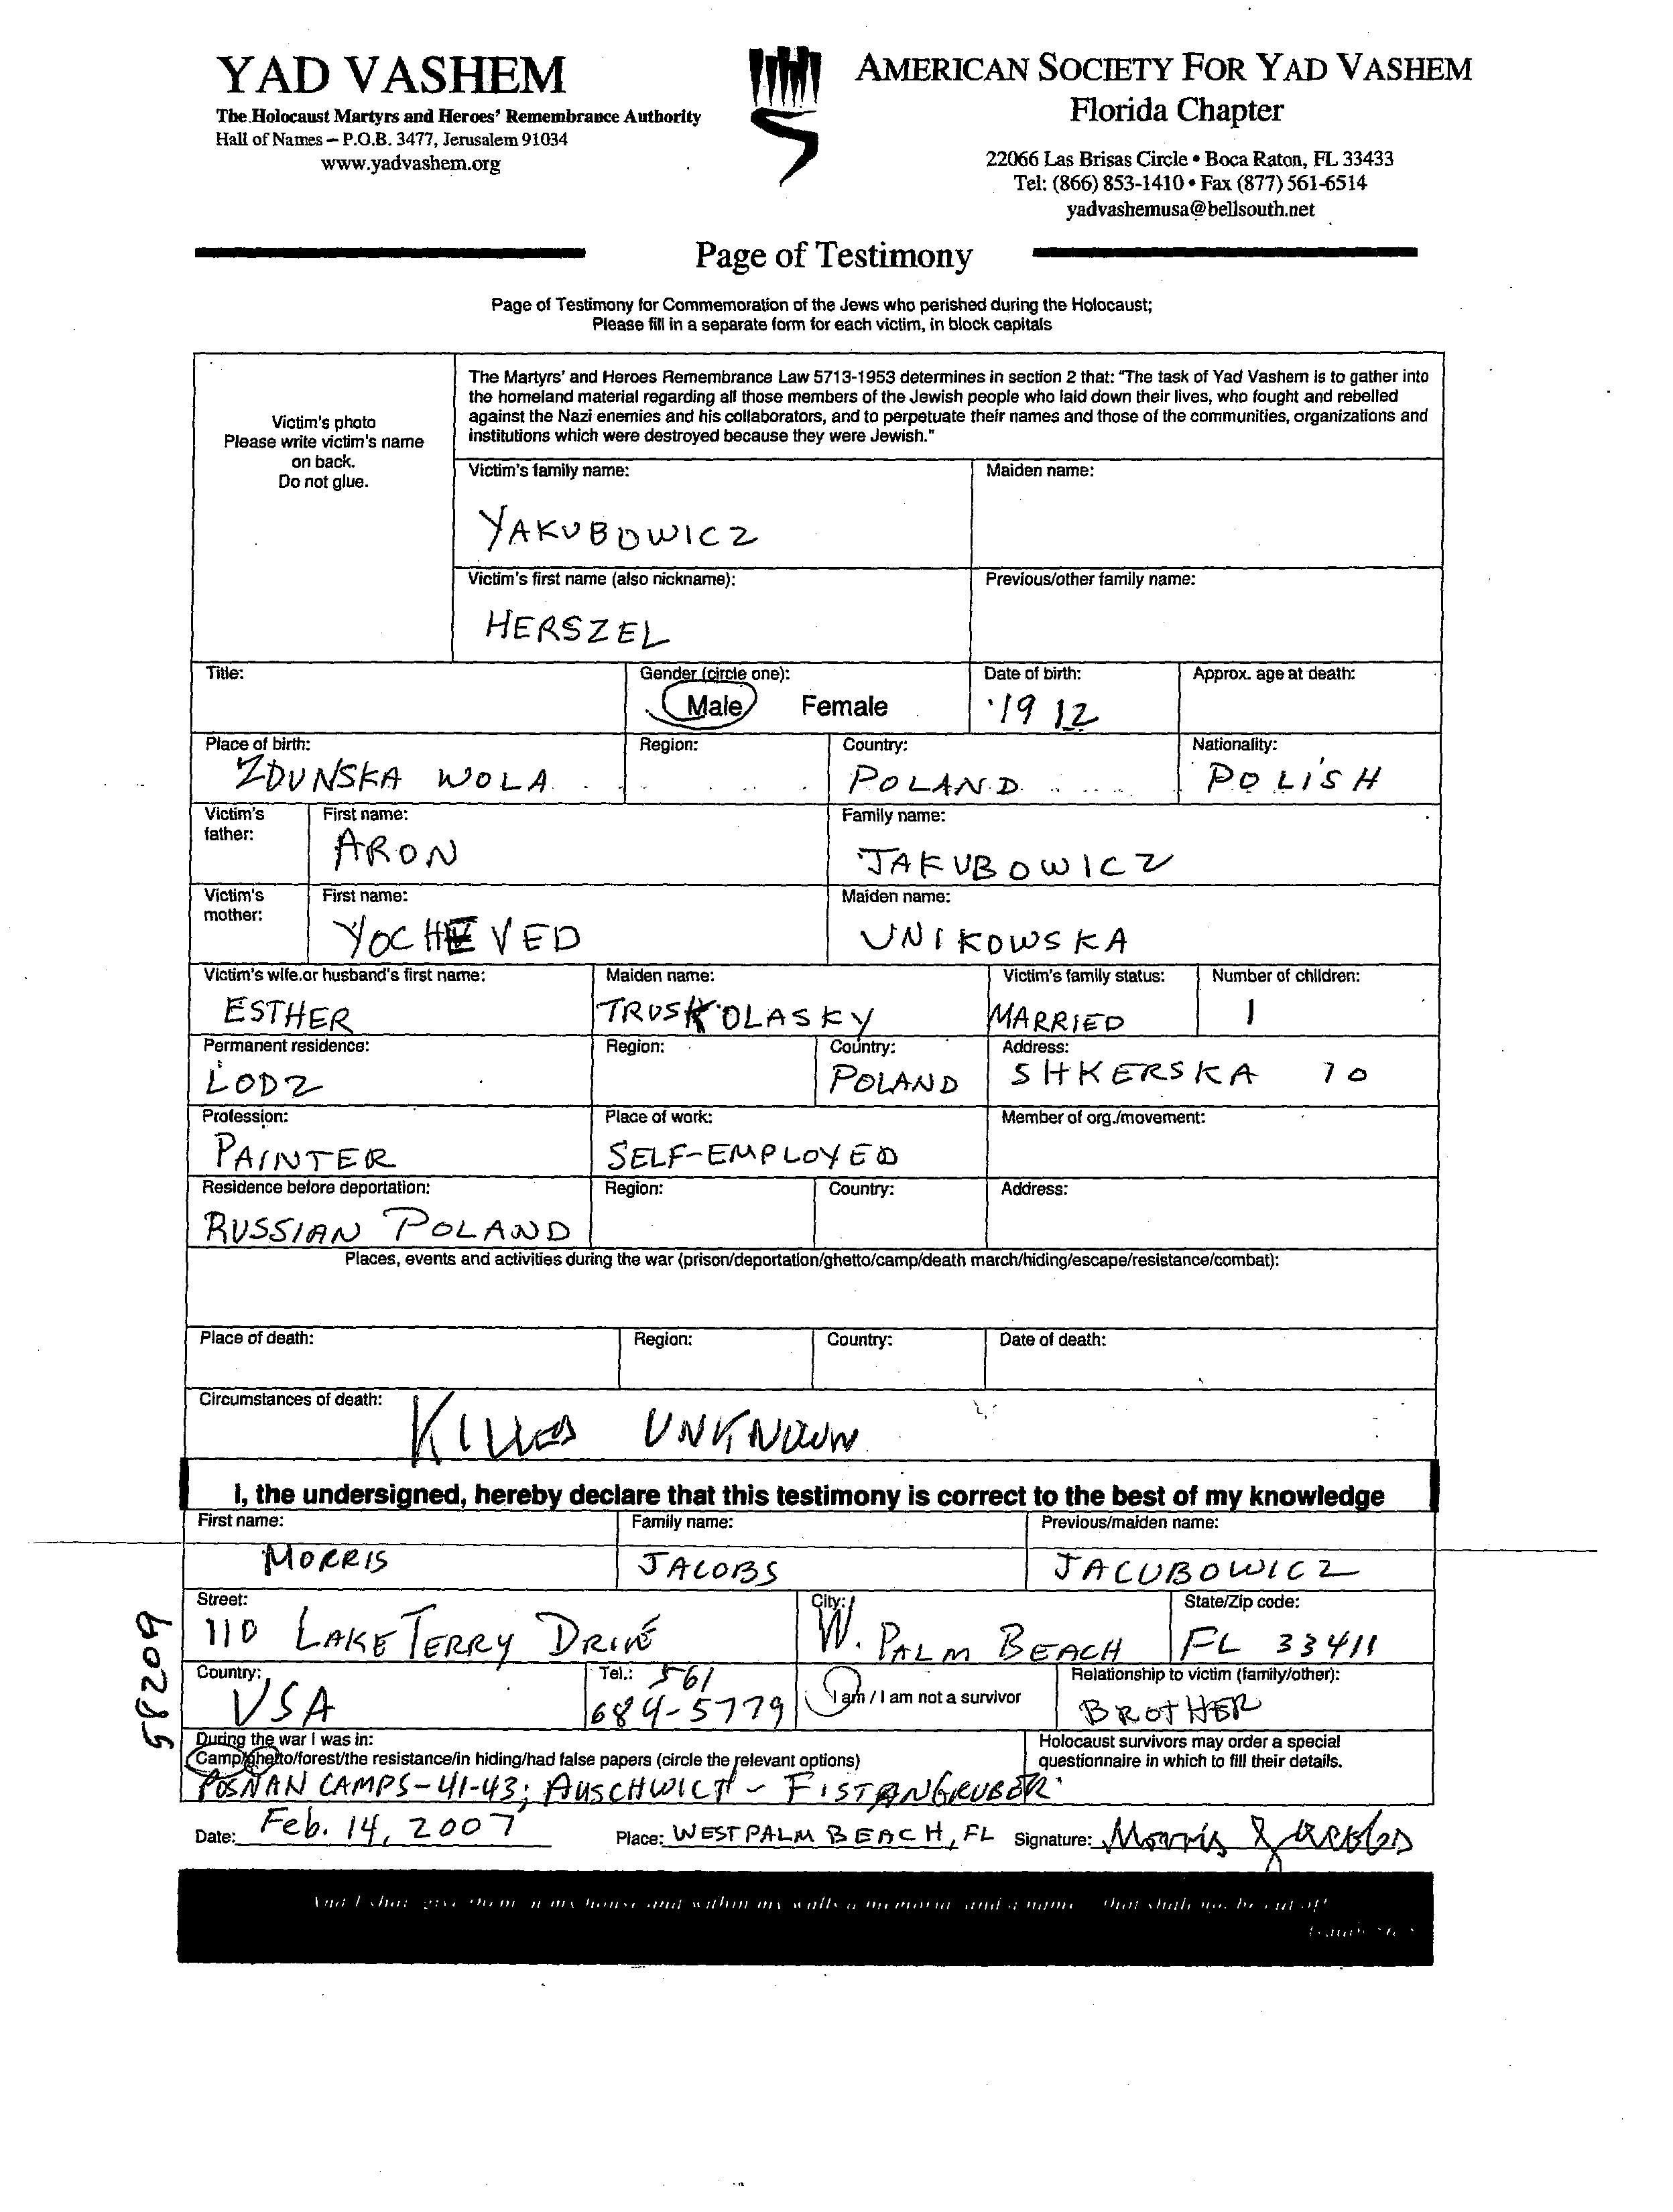 YAD VASHEM
The Holocaust Martyrs and Heroes' Remembrance Authority
Hall of Names – P.O.B. 3477, Jerusalem 91034
www.yadvashem.org
AMERICAN SOCIETY FOR YAD VASHEM
Florida Chapter
22066 Las Brisas Circle • Boca Raton, FL 33433
Tel: (866) 853-1410 • Fax (877) 561-6514
yadvashemusa@bellsouth.net
Page of Testimony
Page of Testimony for Commemoration of the Jews who perished during the Holocaust;
Please fill in a separate form for each victim, in block capitals
Victim's photo
Please write victim's name
on back.
Do not glue.
The Martyrs' and Heroes Remembrance Law 5713-1953 determines in section 2 that: "The task of Yad Vashem is to gather into
the homeland material regarding all those members of the Jewish people who laid down their lives, who fought and rebelled
against the Nazi enemies and his collaborators, and to perpetuate their names and those of the communities, organizations and
institutions which were destroyed because they were Jewish."
Victim's family name: Maiden name:
YAKUBOWICZ
Victim's first name (also nickname): Previous/other family name:
HERSZEL
Title: Gender (circle one): Date of birth: Approx. age at death:
Male Female 1912
Place of birth: Region: Country: Nationality:
ZDUNSKA WOLA POLAND POLISH
Victim's father: First name: Family name:
ARON JAKUBOWICZ
Victim's mother: First name: Maiden name:
YOCHEVED UNIKOWSKA
Victim's wife or husband's first name: Maiden name: Victim's family status: Number of children:
ESTHER TRUSKOLASKY MARRIED 1
Permanent residence: Region: Country: Address:
LODZ POLAND SHKERSKA 10
Profession: Place of work: Member of org./movement:
PAINTER SELF-EMPLOYED
Residence before deportation: Region: Country: Address:
RUSSIAN POLAND
Places, events and activities during the war (prison/deportation/ghetto/camp/death march/hiding/escape/resistance/combat):
Place of death: Region: Country: Date of death:
Circumstances of death:
KILLED UNKNOWN
I, the undersigned, hereby declare that this testimony is correct to the best of my knowledge
First name: Family name: Previous/maiden name:
MORRIS JACOBS JACUBOWICZ
Street: City: State/Zip code:
110 LAKE TERRY DRIVE W. PALM BEACH FL 33411
Country: Tel.: 561 I am / I am not a survivor Relationship to victim (family/other):
USA 684-5779 BROTHER
During the war I was in:
Camp/ghetto/forest/the resistance/in hiding/had false papers (circle the relevant options)
Holocaust survivors may order a special
questionnaire in which to fill their details.
POSNAN CAMPS-41-43; AUSCHWICT - FISTANGRUBER
Date: Feb. 14, 2007 Place: WEST PALM BEACH, FL Signature: Morris Jacobs
58209
And I shall give them in my house and within my walls a memorial and a name that shall not be cut off